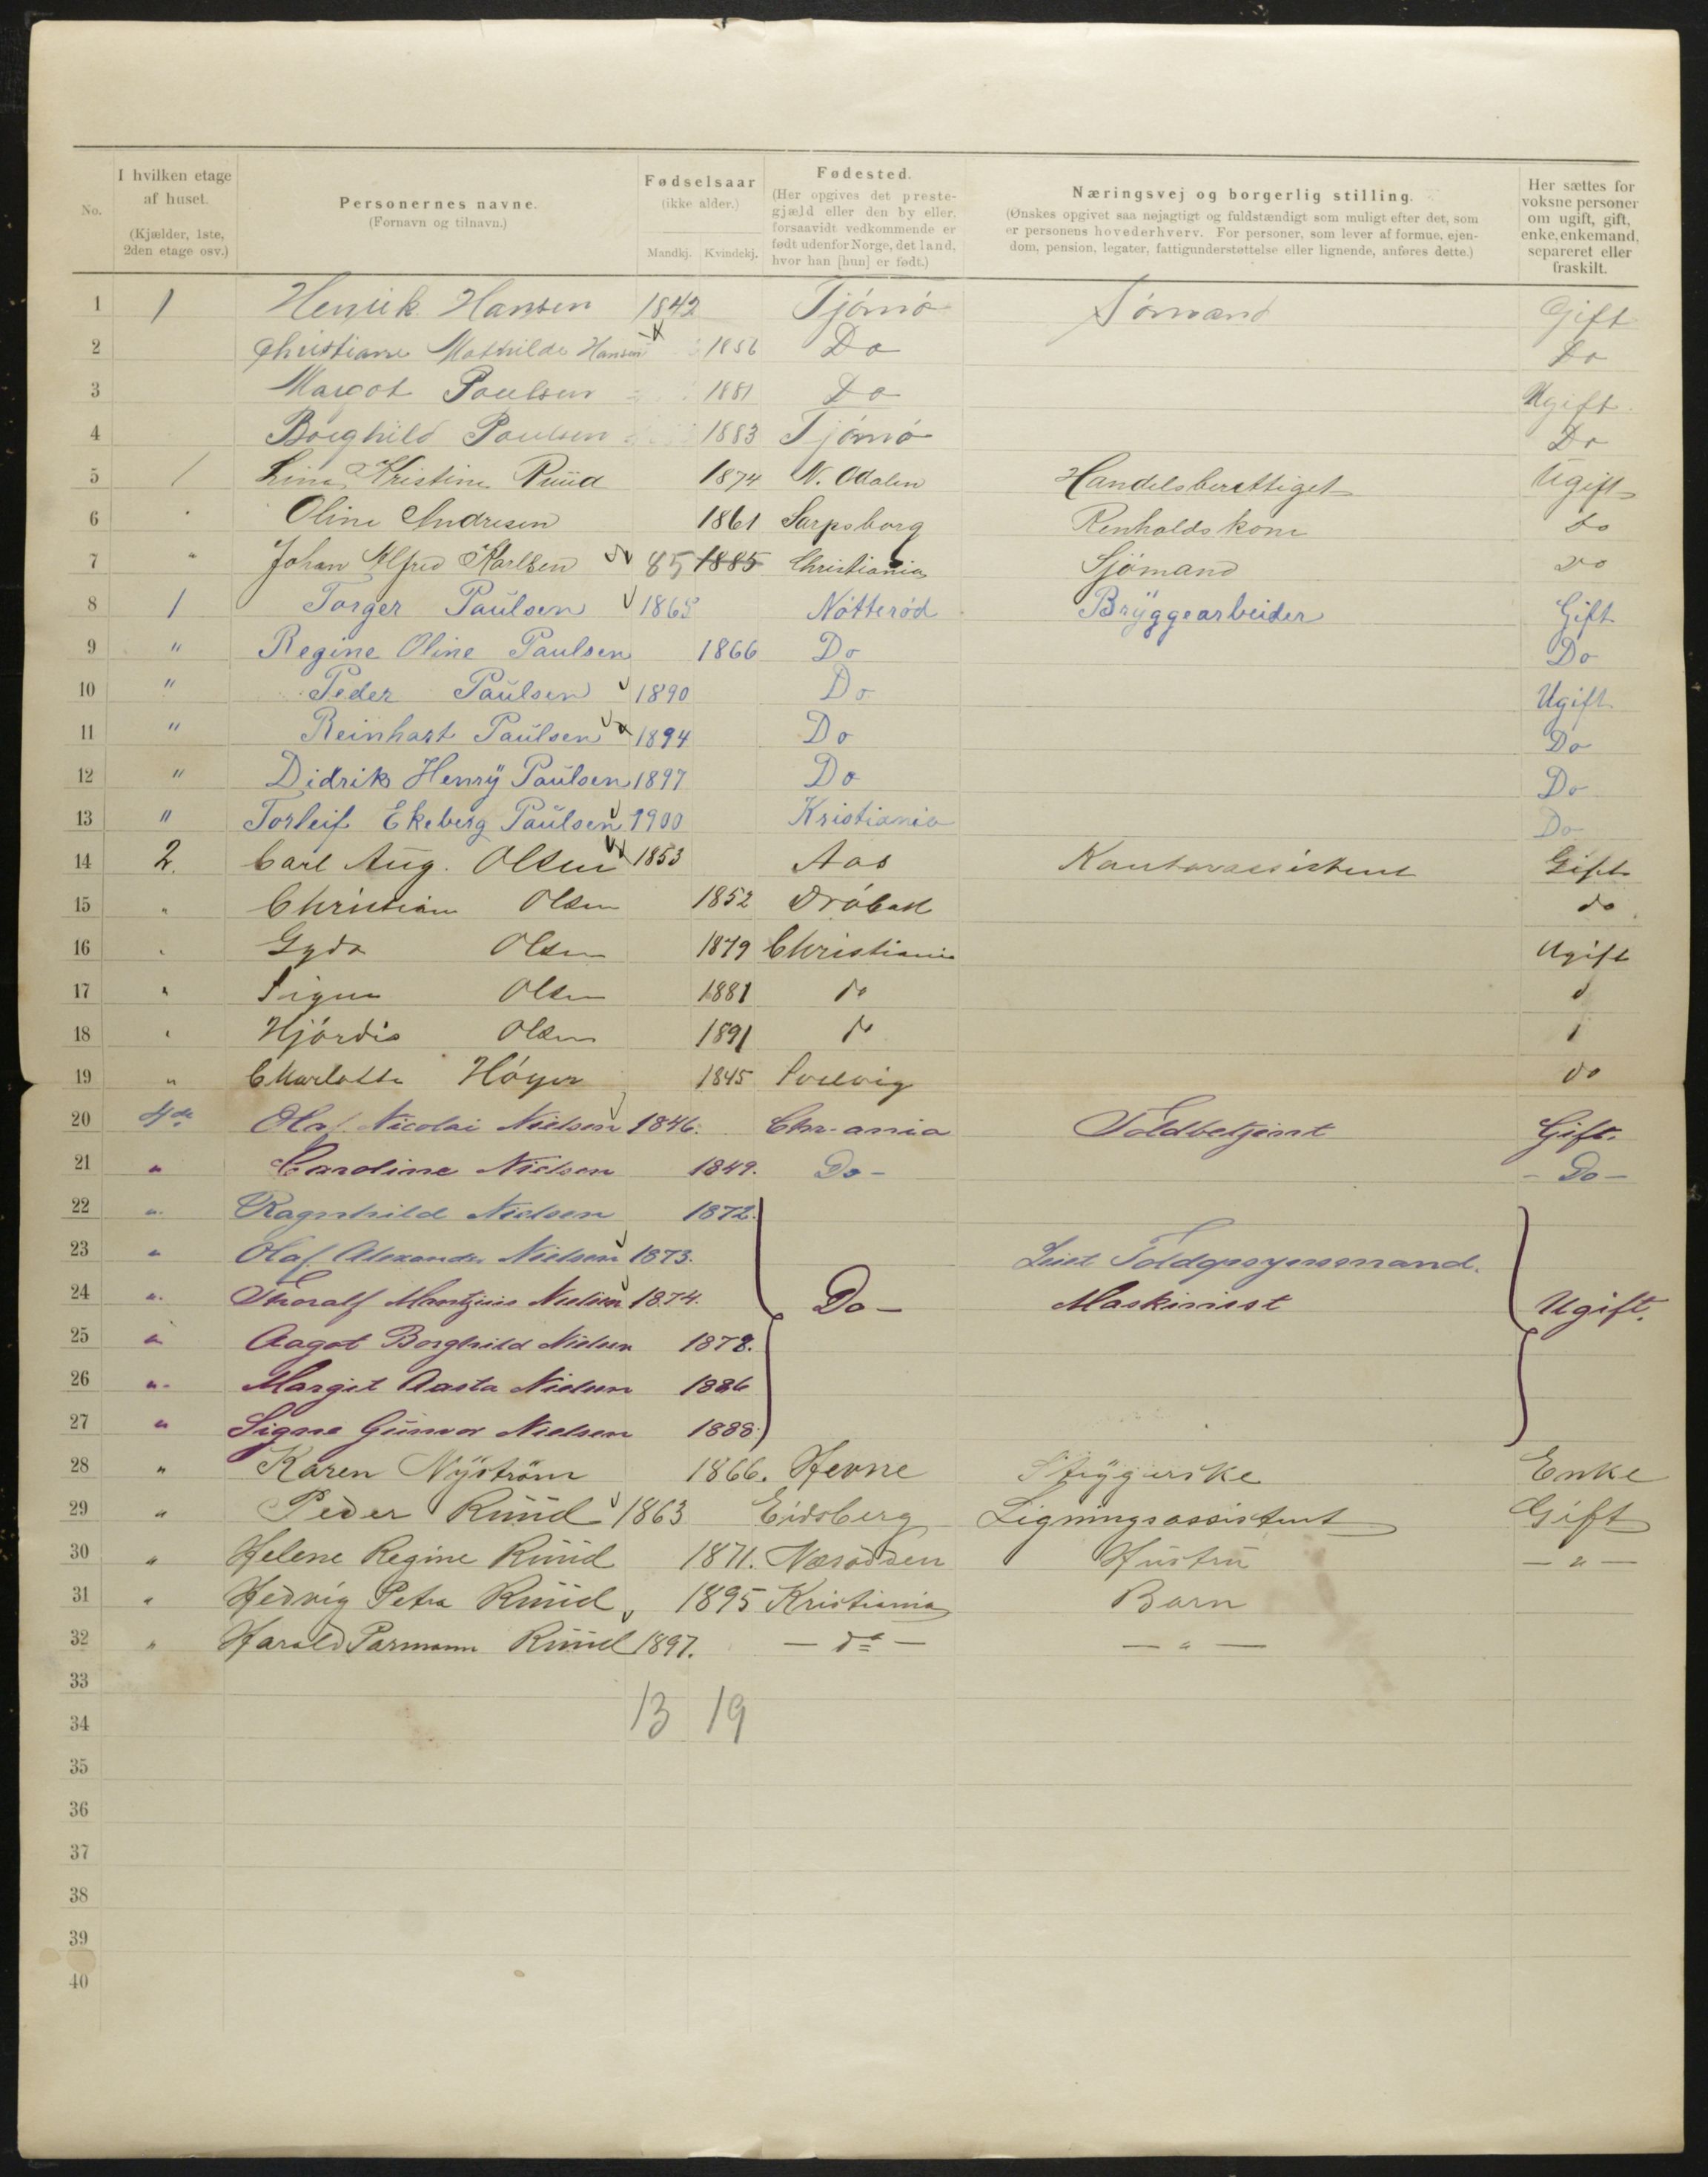 No. | I hvilken etage af huset. (Kjælder, 1ste, 2den etage osv.) | Personernes navne. (Fornavn og tilnavn.) | Fødselsaar (ikke alder.) Mandkj. Kvindekj. | Fødested. (Her opgives det prestegjæld eller den by eller, forsaavidt vedkommende er født udenfor Norge, det land, hvor han [hun] er født.) | Næringsvej og borgerlig stilling. (Ønskes opgivet saa nøjagtigt og fuldstændigt som muligt efter det, som er personens hovederhverv. For personer, som lever af formue, ejendom, pension, legater, fattigunderstøttelse eller lignende, anføres dette.) | Her sættes for voksne personer om ugift, gift, enke, enkemand, separeret eller fraskilt.
1 1 Henrik Hansen 1842 Tjömö Sömand Gift
2 Christiane Mathilde Hansen 1856 Do Do
3 Margot Paulsen 1881 Do Ugift
4 Borghild Paulsen 1883 Tjömö Do
5 / Lina Kristine Ruud 1874 N. Odalen Handelsberettiget Ugift
6 " Oline Andresen 1861 Sarpsborg Renholdskone Do
7 " Johan Alfred Karlsen 85 1885 Christiania Sjömand Do
8 1 Torger Paulsen 1865 Nötteröd Bryggearbeider Gift
9 " Regine Oline Paulsen 1866 Do Do
10 " Peder Paulsen 1890 Do Ugift
11 " Reinhart Paulsen 1894 Do Do
12 " Didrik Henry Paulsen 1897 Do Do
13 " Torleif Ekeberg Paulsen 1900 Kristiania Do
14 2. Carl Aug. Olsen 1853 Aas Kontorassistent Gift
15 " Christiane Olsen 1852 Dröbak do
16 " Gyda Olsen 1879 Christiania Ugift
17 " Signe Olsen 1881 do d
18 " Hjördis Olsen 1891 do
19 " Charlotte Höyer 1845 do
20 4de Olaf Nicolai Nielsen 1846. Chr-ania Toldbetjent Gift.
21 " Caroline Nielsen 1849. Do- -Do-
22 " Ragnhild Nielsen 1872.
23 " Olaf Alexander Nielsen 1873. Toldopsynsmand.
24 " Thoralf Nielsen 1874. Do- Maskinist Ugift.
25 " Aagot Borghild Nielsen 1878.
26 " Margit Aasta Nielsen 1886
27 " Signe Gunvor Nielsen 1888.
28 " Karen Nyström 1866. Hevne Strygerske Enke
29 " Peder Ruud 1863 Eidsberg Ligningsassistent Gift
30 " Helene Regine Ruud 1871. Næsodden Hustru - " -
31 " Hedvig Petra Ruud 1895 Kristiania Barn
32 " Harald Parmann Ruud 1897. - do - - " -
33
34 13 19
35
36
37
38
39
40